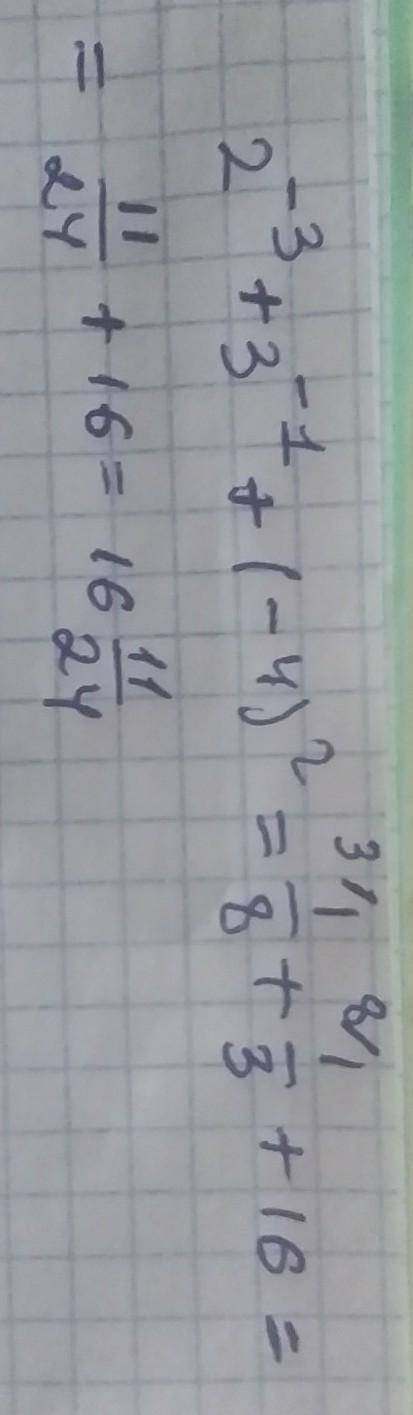 2⁻³ + 3⁻¹ + (-4)² = ³⁾1/8 + ⁸⁾1/3 + 16 =
= 11/24 + 16 = 16 11/24